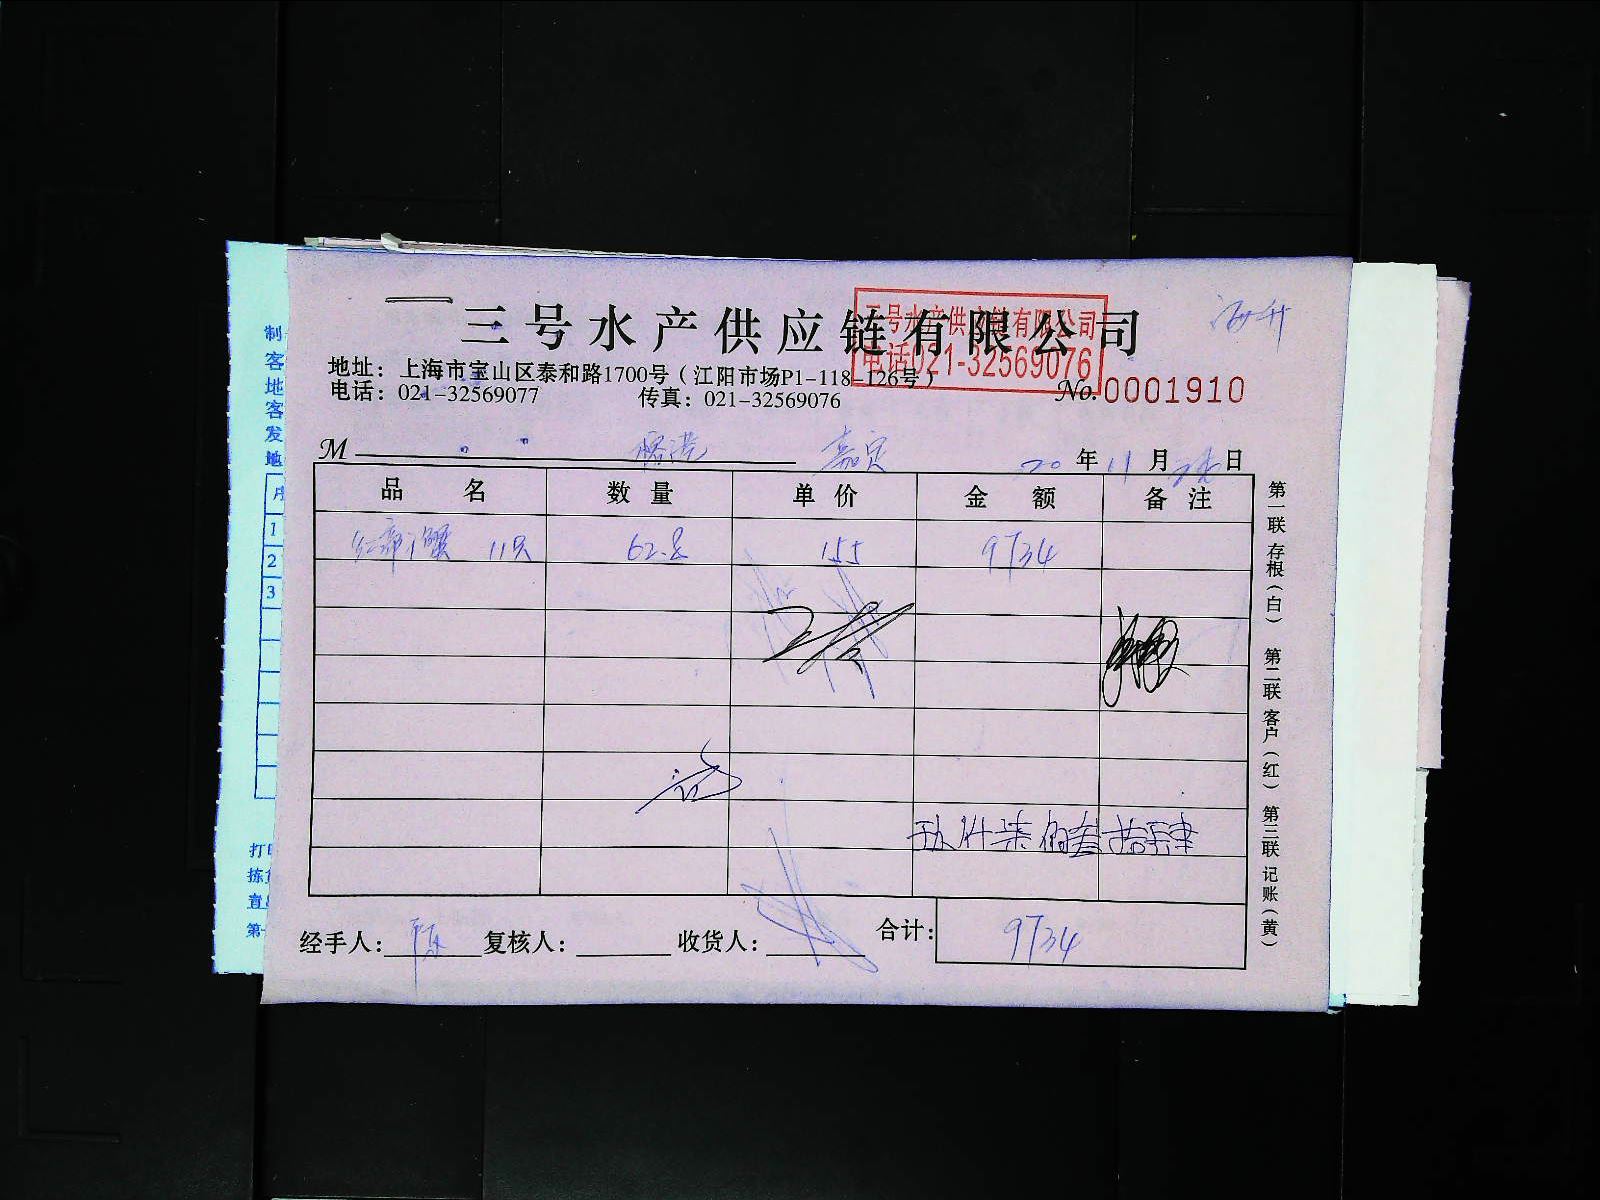 三号水产供应链有限公司
三号水产供应链有限公司
电话021-32569076
海升
地址：上海市宝山区泰和路1700号（江阳市场P1-118-126号）
电话：021-32569077 传真：021-32569076
No.0001910
M 嘉定 20年11月日
品名 数量 单价 金额 备注
红帝王蟹 11只 62.8 155 9734
玖仟柒佰叁拾肆
经手人： 复核人： 收货人： 合计：9734
第一联 存根（白） 第二联 客户（红） 第三联 记账（黄）
制
客
地
客
发
地
序
1
2
3
打印
拣货
第一